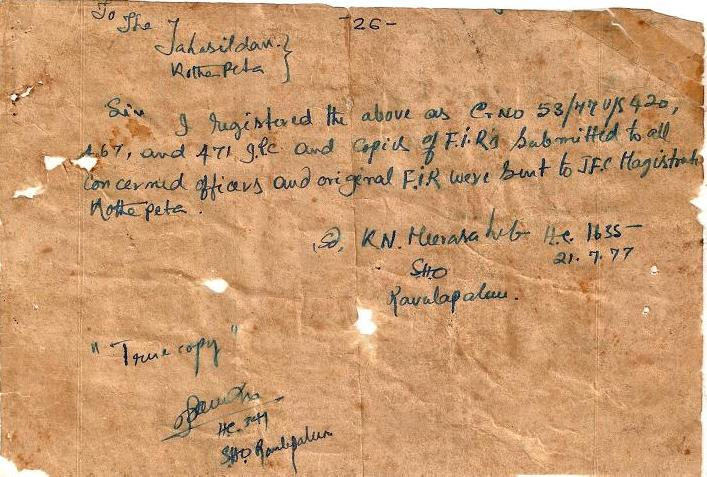 To
The -26-
Tahasildar }
Kothapeta }
Sir
I registered the above as Cr.No 53/77 U/S 420,
467, and 471 I.P.C and Copies of F.I.Rs Submitted to all
Concerned officers and original F.I.R were sent to J.F.C Magistrate
Kothepeta.
Sd, K.N. Meerasaheb H.C. 1635
21.7.77
S.H.O
Ravulapalem.
"True copy"
H.C.
S.H.O. Ravulapalem